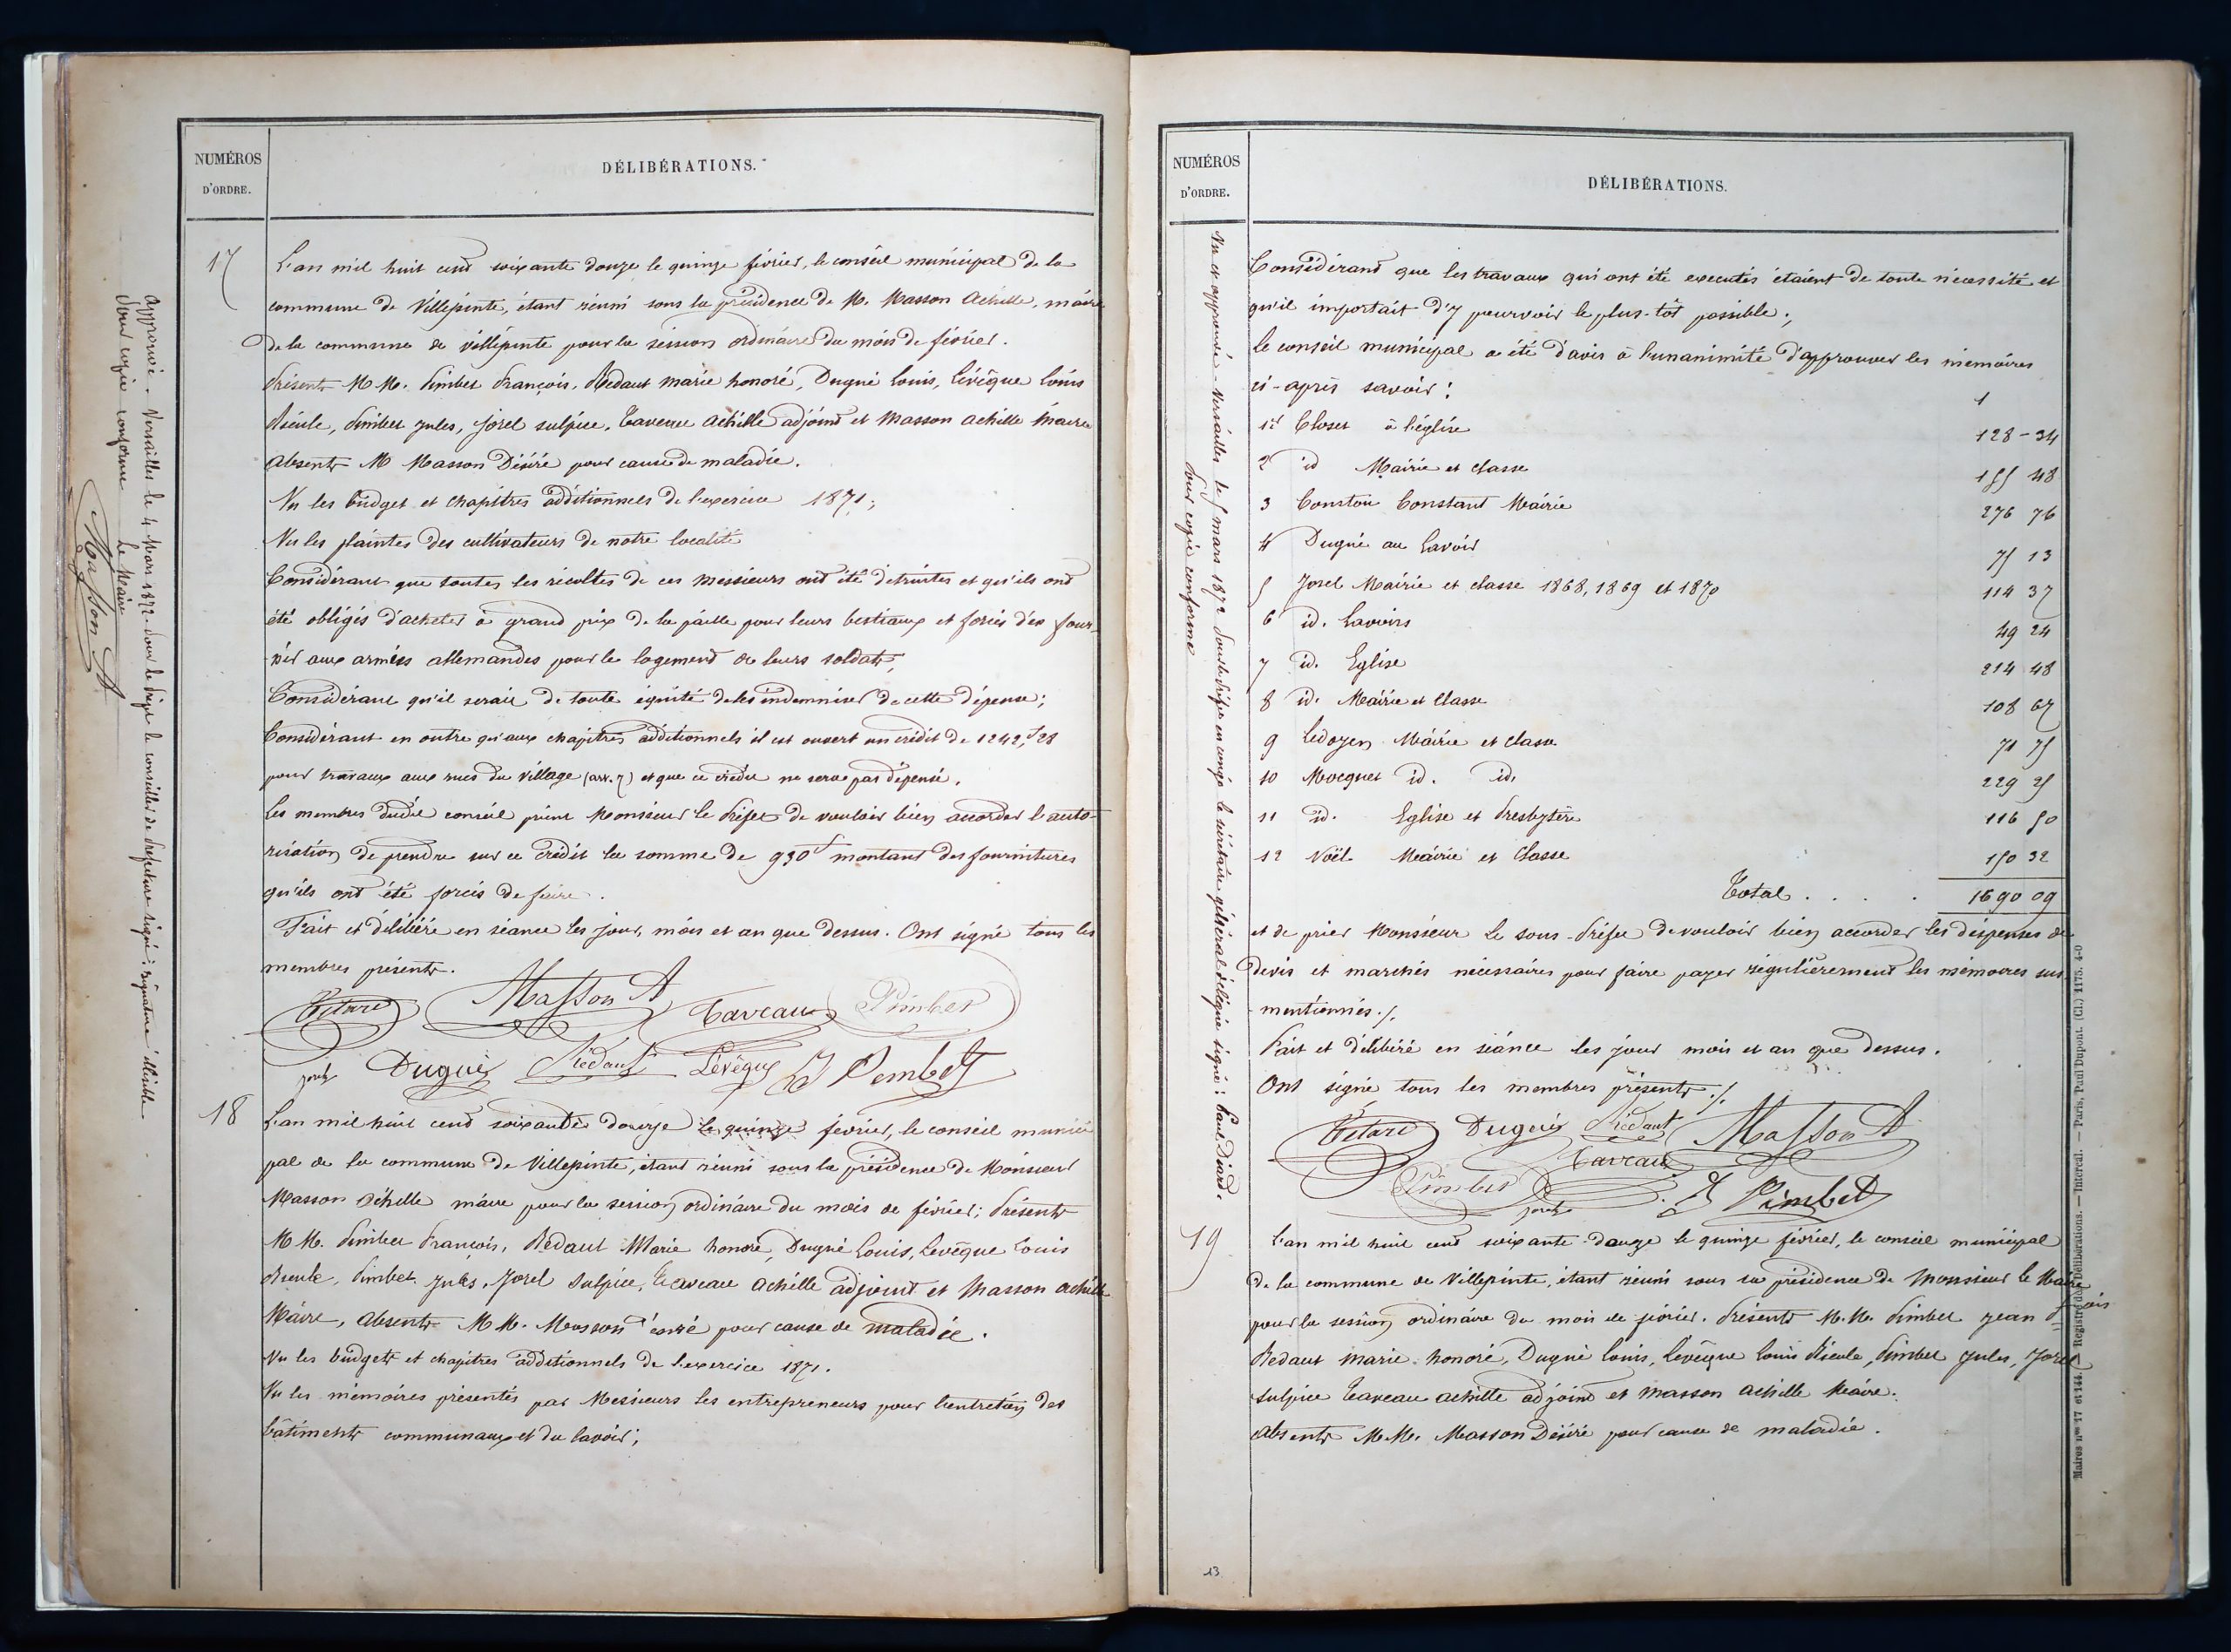 NUMÉROS
D'ORDRE.
DÉLIBÉRATIONS.
17
L'an mil huit cent soixante douze le quinze février, le conseil municipal de la
commune de Villepinte, étant réuni sous la présidence de M. Masson Achille, maire
de la commune de villepinte pour la session ordinaire du mois de février.
Présents M M. Pimbet François, Redaut marie honoré, Dugué Louis, Lévêque Louis
Aicule, Pimbet Jules, Jorel sulpice, Taveau Achille adjoint et Masson achille Maire
Absents M Masson Désiré pour cause de maladie.
Vu les budget et chapitres additionnels de l'exercice 1871;
Vu les plaintes des cultivateurs de notre localité
Considérant que toutes les récoltes de ces Messieurs ont été détruites et qu'ils ont
été obligés d'acheter à grand prix de la paille pour leurs bestiaux et forcés d'en four-
nir aux armées allemandes pour le logement de leurs soldats;
Considérant qu'il serait de toute équité de les indemniser de cette dépense;
Considérant en outre qu'aux chapitres additionnels il est ouvert un crédit de 1242,f28
pour travaux aux rues du village (art. 7) et que ce crédit ne sera pas dépensé.
Les membres dudit conseil prient Monsieur le Préfet de vouloir bien accorder l'auto-
risation de prendre sur ce crédit la somme de 930f montant des fournitures
qu'ils ont été forcés de faire.
Fait et délibéré en séance les jour, mois et an que dessus. Ont signé tous les
membres présents.
Masson A Taveau Pimbet
Dugué Rédaut Lévêque J Pimbet
Approuvé. Versailles le 4 Mars 1872. Pour le Préfet le conseiller de préfecture signé: signature illisible
Pour copie conforme
Le Maire
Masson A
18
L'an mil huit cent soixante douze le quinze février, le conseil munici
pal de la commune de Villepinte, étant réuni sous la présidence de Monsieur
Masson Achille maire pour la session ordinaire du mois de février; Présents
M M. Pimbet François, Redaut Marie honoré, Dugué Louis, Levêque Louis
Aicule, Pimbet Jules, Jorel Sulpice, Taveau Achille adjoint et Masson achille
Maire, Absents M M. Masson Désiré pour cause de maladie.
Vu les budgets et chapitres additionnels de l'exercice 1871.
Vu les mémoires présentés par Messieurs les entrepreneurs pour l'entretien des
bâtiments communaux et du lavoir;
NUMÉROS
D'ORDRE.
DÉLIBÉRATIONS.
Vu et approuvé - Versailles le 5 mars 1872 Pour le Préfet en congé le secrétaire général délégué signé: Paul Diard.
Pour copie conforme
Considérant que les travaux qui ont été executés étaient de toute nécessité et
qu'il importait d'y pourvoir le plus-tôt possible;
le conseil municipal a été d'avis à l'unanimité d'approuver les mémoires
ci-après savoir:
1er Closet à l'église 128-34
2 id Mairie et classe 155 48
3 Couston Constant Mairie 276 76
4 Dugué au Lavoir 75 13
5 Jorel Mairie et classe 1868, 1869 et 1870 114 37
6 id. Lavoirs 49 24
7 id. Eglise 214 48
8 id. Mairie et Classe 108 67
9 Ledoyen Mairie et classe 71 75
10 Mocquet id. id. 229 25
11 id. Eglise et Presbytère 116 50
12 Noël Mairie et Classe 150 32
Total.... 1690 09
et de prier Monsieur Le sous-Préfet de vouloir bien accorder les dispenses de
devis et marchés nécessaires pour faire payer régulièrement les mémoires sus
mentionnés./.
Fait et délibéré en séance les jour mois et an que dessus.
Ont signé tous les membres présents./.
Dugué Rédaut Masson A
Taveau
Pimbet J Pimbet
19
L'an mil huit cent soixante-douze le quinze février, le conseil municipal
de la commune de Villepinte, étant réuni sous la présidence de Monsieur le Maire
pour la session ordinaire du mois de février. Présents M.M. Pimbet Jean
Redaut marie honoré, Dugué Louis, Levêque Louis Aicule, Pimbet Jules, Jorel
sulpice Taveau achille adjoint et Masson Achille Maire.
Absents M.M. Masson Désiré pour cause de maladie.
13
Maires nos 17 et 144. Registre de Délibérations. — Intercal. — Paris, Paul Dupont. (Cl.) 1175. 4-0